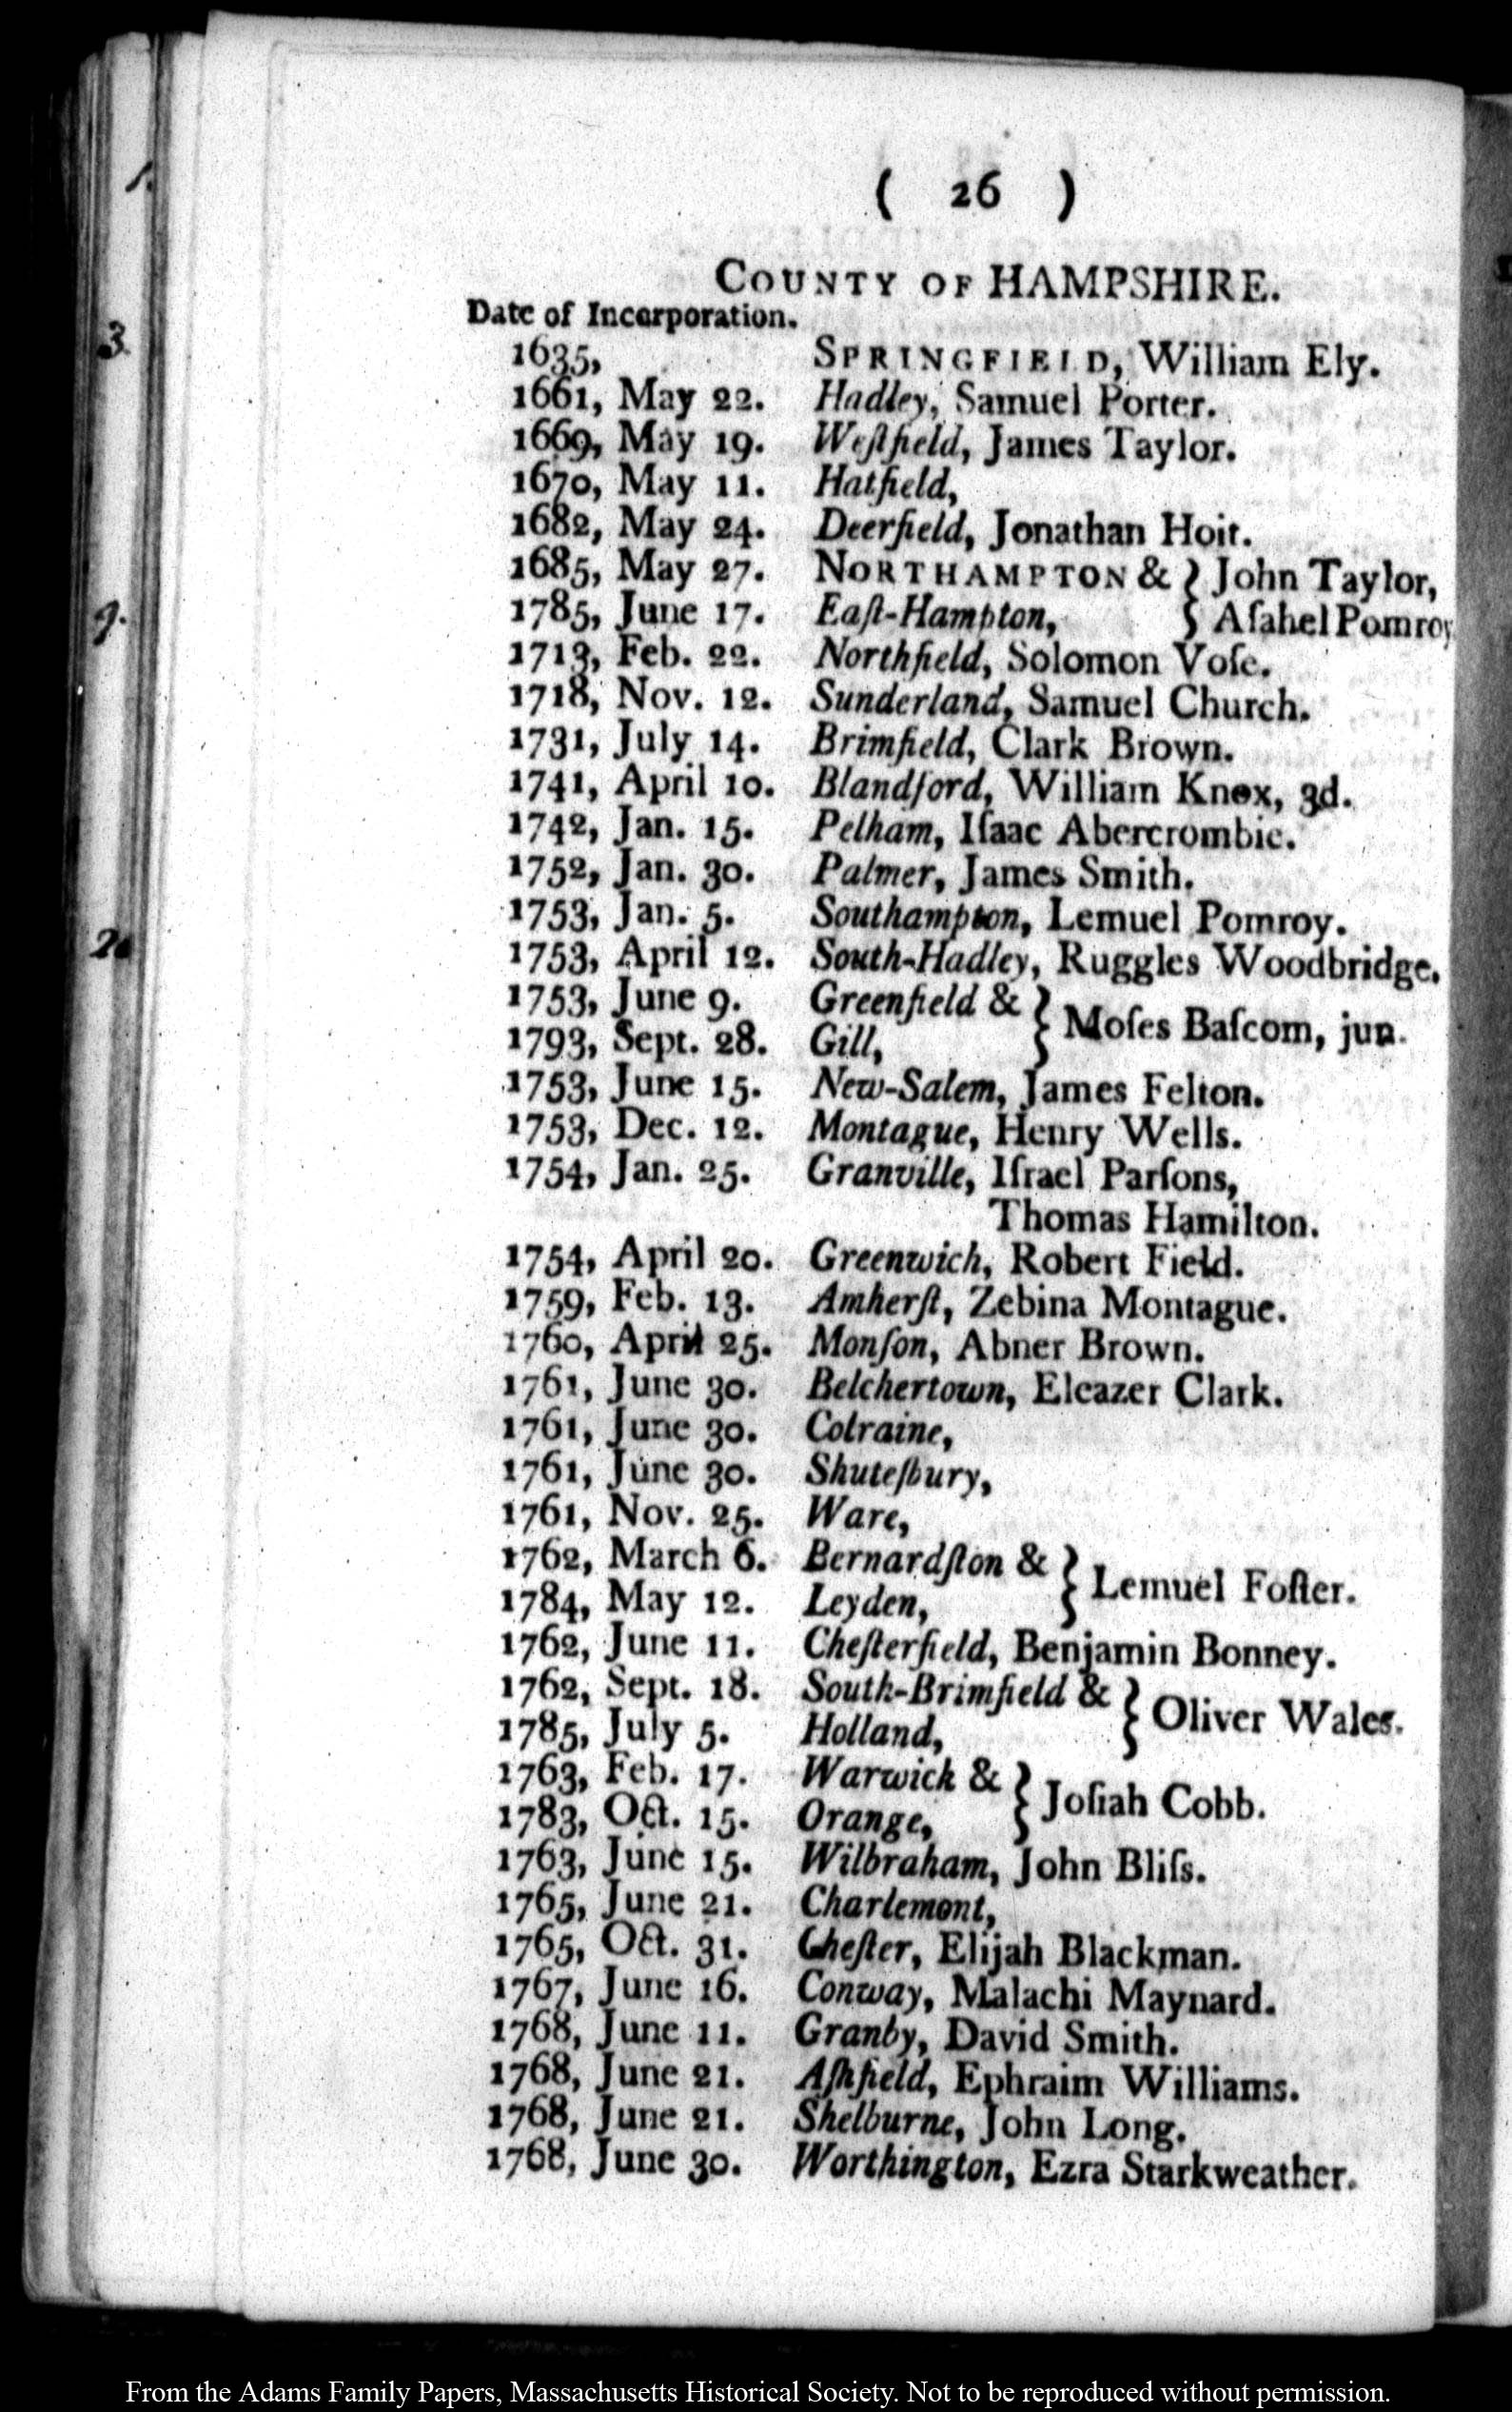 1.
3
9.
( 26 )
COUNTY OF HAMPSHIRE.
Date of Incorporation.
1635, SPRINGFIELD, William Ely.
1661, May 22. Hadley, Samuel Porter.
1669, May 19. Weſtfield, James Taylor.
1670, May 11. Hatfield,
1682, May 24. Deerfield, Jonathan Hoit.
1685, May 27. NORTHAMPTON & } John Taylor,
1785, June 17. Eaſt-Hampton, } Aſahel Pomroy
1713, Feb. 22. Northfield, Solomon Voſe.
1718, Nov. 12. Sunderland, Samuel Church.
1731, July 14. Brimfield, Clark Brown.
1741, April 10. Blandford, William Knox, 3d.
1742, Jan. 15. Pelham, Iſaac Abercrombie.
1752, Jan. 30. Palmer, James Smith.
1753, Jan. 5. Southampton, Lemuel Pomroy.
1753, April 12. South-Hadley, Ruggles Woodbridge.
1753, June 9. Greenfield & } Moſes Baſcom, jun.
1793, Sept. 28. Gill,
1753, June 15. New-Salem, James Felton.
1753, Dec. 12. Montague, Henry Wells.
1754, Jan. 25. Granville, Iſrael Parſons,
Thomas Hamilton.
1754, April 20. Greenwich, Robert Field.
1759, Feb. 13. Amherſt, Zebina Montague.
1760, April 25. Monſon, Abner Brown.
1761, June 30. Belchertown, Eleazer Clark.
1761, June 30. Colraine,
1761, June 30. Shuteſbury,
1761, Nov. 25. Ware,
1762, March 6. Bernardſton & } Lemuel Foſter.
1784, May 12. Leyden,
1762, June 11. Cheſterfield, Benjamin Bonney.
1762, Sept. 18. South-Brimfield & } Oliver Wales.
1785, July 5. Holland,
1763, Feb. 17. Warwick & } Joſiah Cobb.
1783, Oct. 15. Orange,
1763, June 15. Wilbraham, John Bliſs.
1765, June 21. Charlemont,
1765, Oct. 31. Cheſter, Elijah Blackman.
1767, June 16. Conway, Malachi Maynard.
1768, June 11. Granby, David Smith.
1768, June 21. Aſhfield, Ephraim Williams.
1768, June 21. Shelburne, John Long.
1768, June 30. Worthington, Ezra Starkweather.
From the Adams Family Papers, Massachusetts Historical Society. Not to be reproduced without permission.